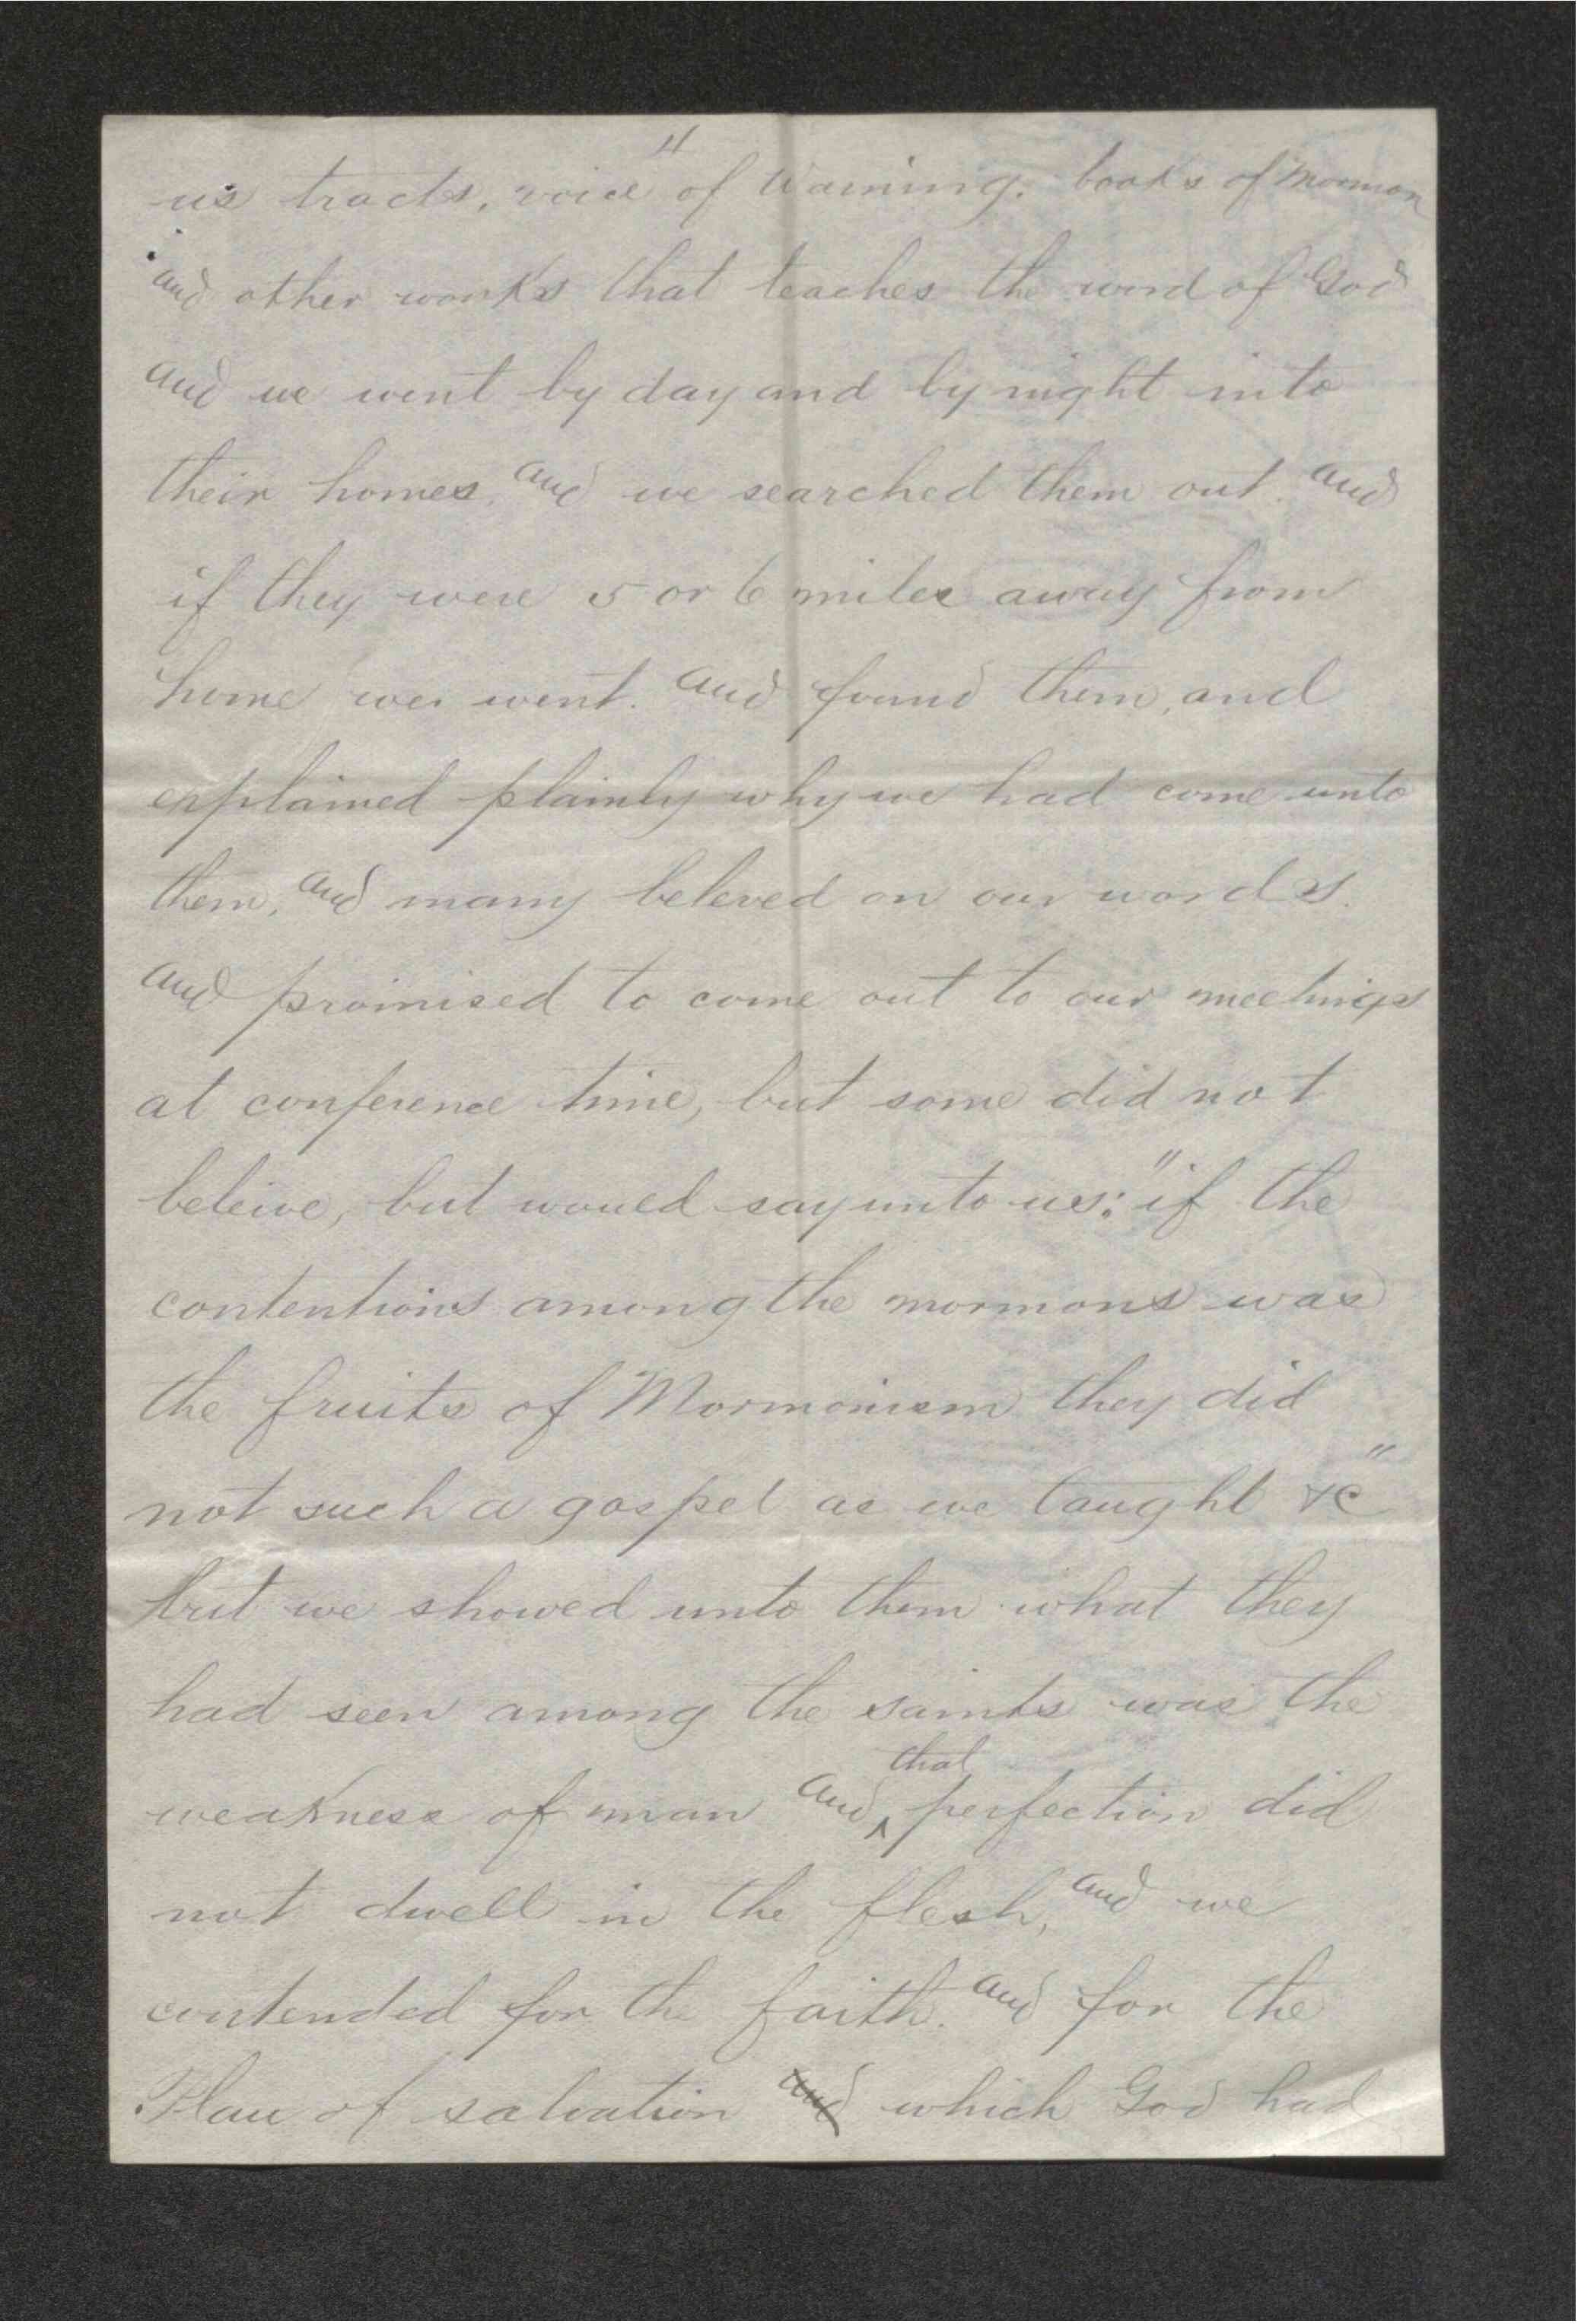 4
us tracts, voice of Warning. books of Mormon
and other works that teaches the word of God
and we went by day and by night into
their homes, and we searched them out. and
if they were 5 or 6 miles away from
home we went. and found them, and
explained plainly why we had come unto
them, and many beleved on our words.
and promised to come out to our meetings
at conference time, but some did not
beleive, but would say unto us: "if the
contentions among the mormons was
the fruits of Mormonism they did
not such a gospel as we taught &c"
but we showed unto them what they
had seen among the saints was the
that
weakness of man and ^ perfection did
not dwell in the flesh, and we
contended for the faith. and for the
Plan of salvation and which God had